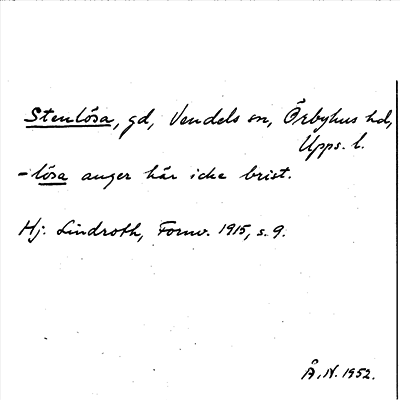 Stenlösa, gd, Vendels sn, Örbyhus hd,
Upps. l.
-lösa anger här icke brist.
Hj. Lindroth, Fornv. 1915, s. 9.
Å.N. 1952.